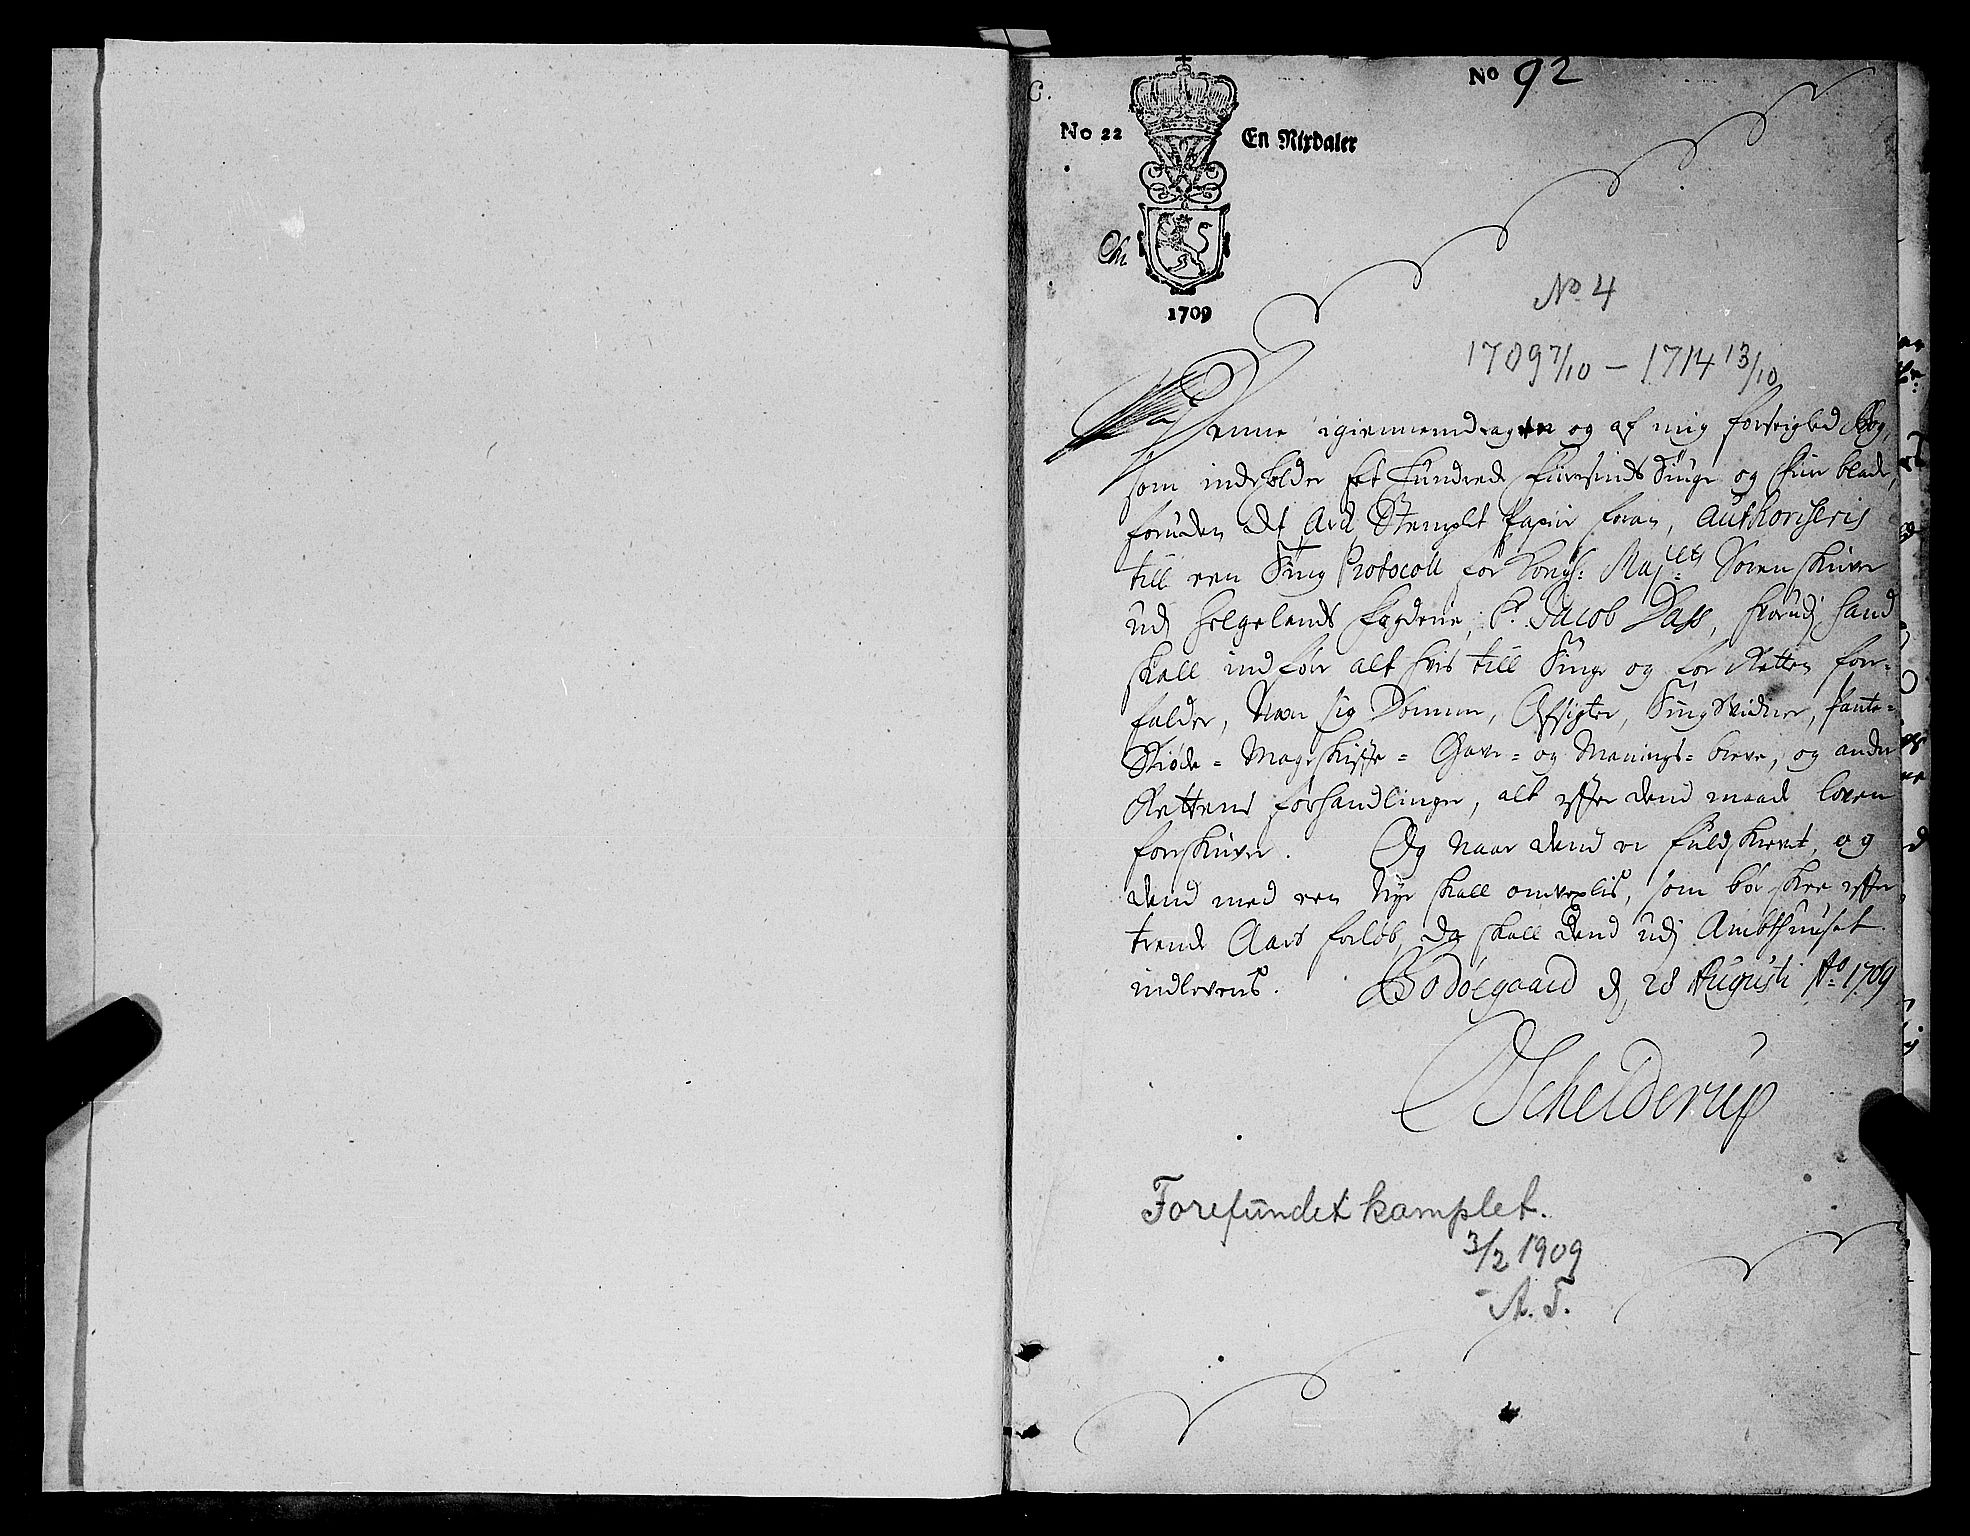 No 92
C.
No 22
En Rixdaler
1709
No 4
1709 7/10 – 1714 13/10
Denne igiennemdragen og af mig forseigled Bog,
som indeholder et hundrede fiiresinds Tiuge og fiire blade,
foruden det Ark Stemplet Papiir foran, authoriseris
till een Ting Protocoll for Kongl: Maj:ts Sorenskriver
udj Helgelands fogderie, Sr. Jacob Dass, hvorudj hand
skall indføre alt hvis till Tinge og for Retten fore-
falder, være sig Domme, Afsigter, Tingsvidner, pante-
Skiøde- Mageskiffte- Gave- og Manings- breve, og andre
Rettens forhandlinger, alt effter dend maade loven
foreskriver. Og naar dend er fuldskrevet, og
dend med een Nye skall omvexlis, som bør skee effter
trende Aars forløb, da skall dend udj Ambthuuset
indleveris. Bodøegaard d. 28 Augusti Ao 1709
Schelderup
Forefundet komplet.
3/2 1909
A. T.